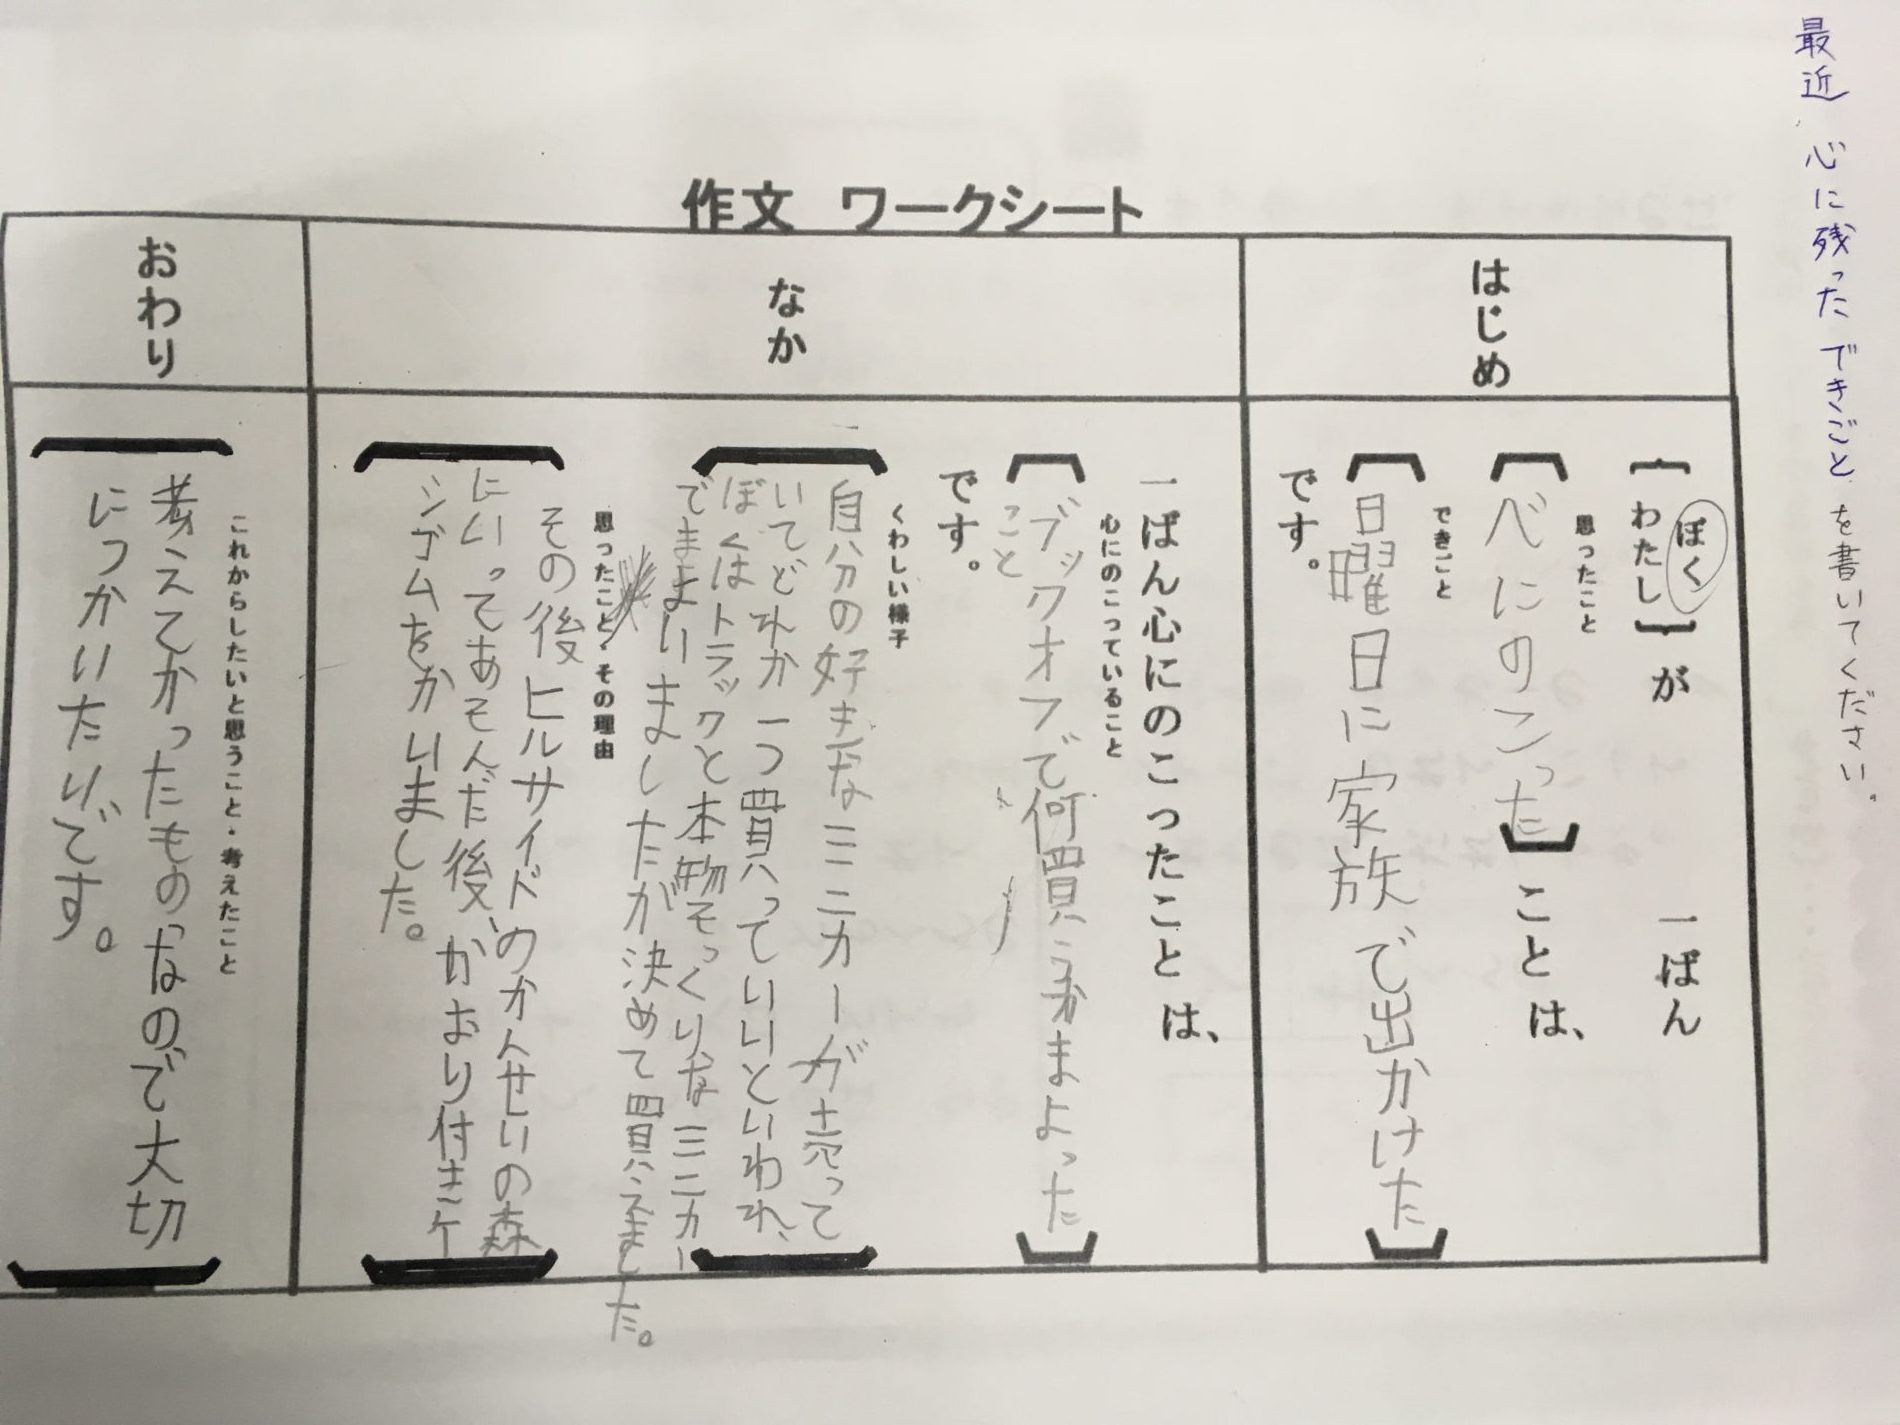 最近 心に残ったできごとを書いてください。
作文 ワークシート
はじめ
ぼく
わたし
が
一ばん
思ったこと
心にのこった
ことは、
できごと
日曜日に家族で出かけた
です。
なか
一ばん心にのこったことは、
心にのこっていること
ブックオフで何買うかまよった
こと
です。
くわしい様子
自分の好きなミニカーが売って
いてどれか一つ買っていいといわれ、
ぼくはトラックと本物そっくりなミニカー
でまよいましたが決めて買えました。
思ったこと・その理由
その後ヒルサイドのかんせいの森
にいってあそんだ後、かおり付きケ
シゴムをかいました。
おわり
これからしたいと思うこと・考えたこと
考えてかったものなので大切
につかいたいです。